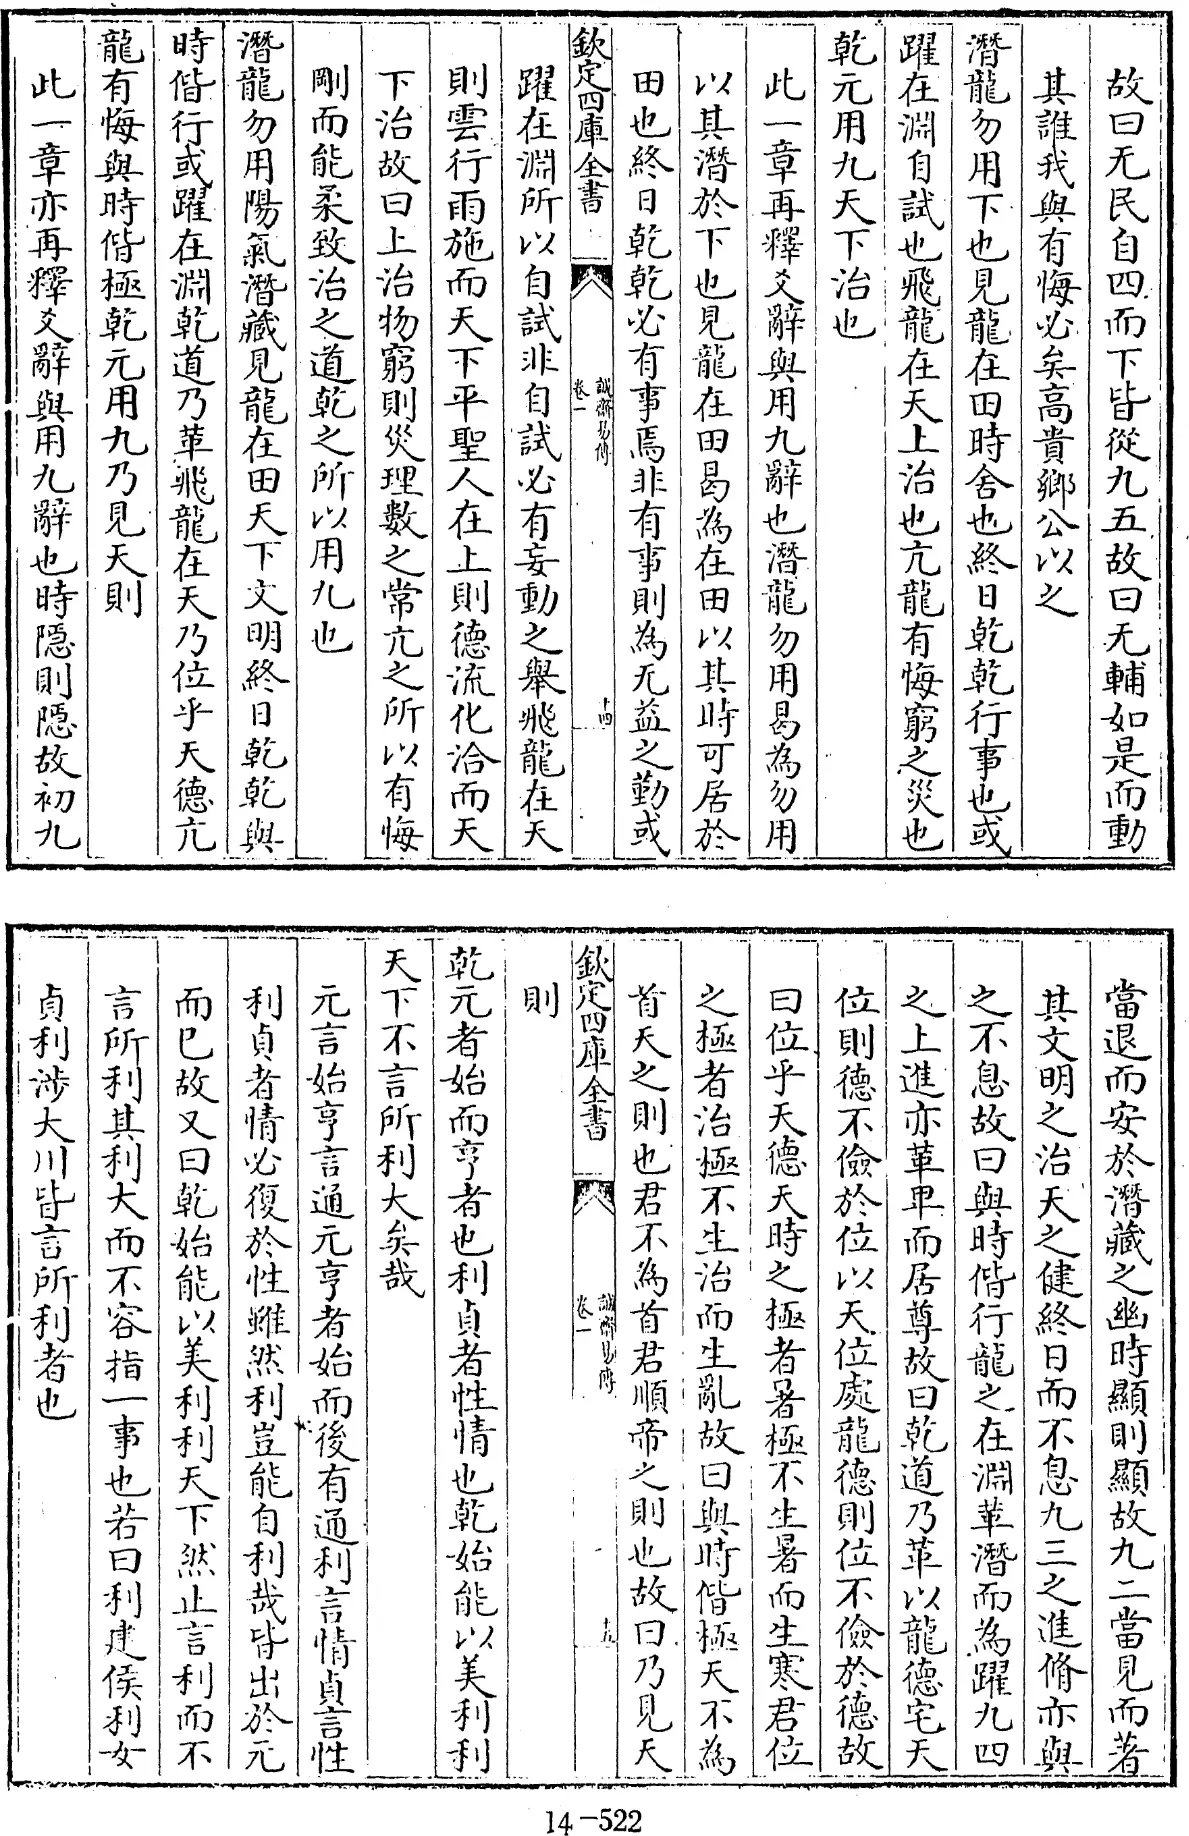 故曰无民自四而下皆從九五故曰无輔如是而動
其誰我與有悔必矣高貴鄉公以之
潛龍勿用下也見龍在田時舍也終日乾乾行事也或
躍在淵自試也飛龍在天上治也亢龍有悔窮之災也
乾元用九天下治也
此一章再釋爻辭與用九辭也潛龍勿用曷為勿用
以其潛於下也見龍在田曷為在田以其時可居於
田也終日乾乾必有事焉非有事則為无益之勤或
欽定四庫全書
誠齋易傳
卷一
十四
躍在淵所以自試非自試必有妄動之舉飛龍在天
則雲行雨施而天下平聖人在上則德流化洽而天
下治故曰上治物窮則災理數之常亢之所以有悔
剛而能柔致治之道乾之所以用九也
潛龍勿用陽氣潛藏見龍在田天下文明終日乾乾與
時偕行或躍在淵乾道乃革飛龍在天乃位乎天德亢
龍有悔與時偕極乾元用九乃見天則
此一章亦再釋爻辭與用九辭也時隱則隱故初九
當退而安於潛藏之幽時顯則顯故九二當見而著
其文明之治天之健終日而不息九三之進脩亦與
之不息故曰與時偕行龍之在淵革潛而為躍九四
之上進亦革卑而居尊故曰乾道乃革以龍德宅天
位則德不儉於位以天位處龍德則位不儉於德故
曰位乎天德天時之極者暑極不生暑而生寒君位
之極者治極不生治而生亂故曰與時偕極天不為
首天之則也君不為首君順帝之則也故曰乃見天
欽定四庫全書
誠齋易傳
卷一
十五
則
乾元者始而亨者也利貞者性情也乾始能以美利利
天下不言所利大矣哉
元言始亨言通元亨者始而後有通利言情貞言性
利貞者情必復於性雖然利豈能自利哉皆出於元
而已故又曰乾始能以美利利天下然止言利而不
言所利其利大而不容指一事也若曰利建侯利女
貞利涉大川皆言所利者也
14-522